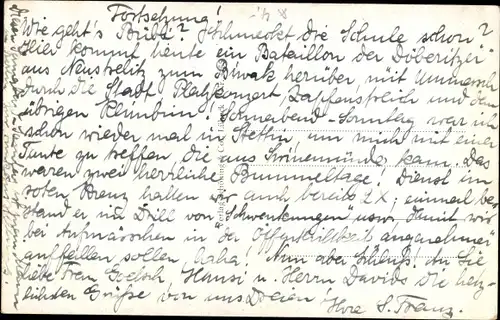 Fortsetzung!
Wie geht's Bübi? Schmeckt die Schule schon?
Hier kommt heute ein Bataillon der Döberitzer
aus Neustrelitz zum Biwak herüber mit Ummarsch
durch die Stadt, Platzkonzert Zapfenstreich und dem
übrigen Klimbim! Sonnabend-Sonntag war ich
schon wieder mal in Stettin, um mich mit einer
Tante zu treffen, die aus Swinemünde kam. Das
waren zwei herrliche Bummeltage! Dienst im
roten Kreuz hatten wir auch bereits 2x; einmal be-
stand er in Drill von "Schwenkungen" usw., damit wir
bei Aufmärschen in der Öffentlichkeit "angenehm"
auffallen sollen, haha! Nun aber Schluß. An Sie
liebe Frau Hansi u. Herrn Davids die herz-
lichsten Grüße von uns Dreien! Ihre S. Franz.